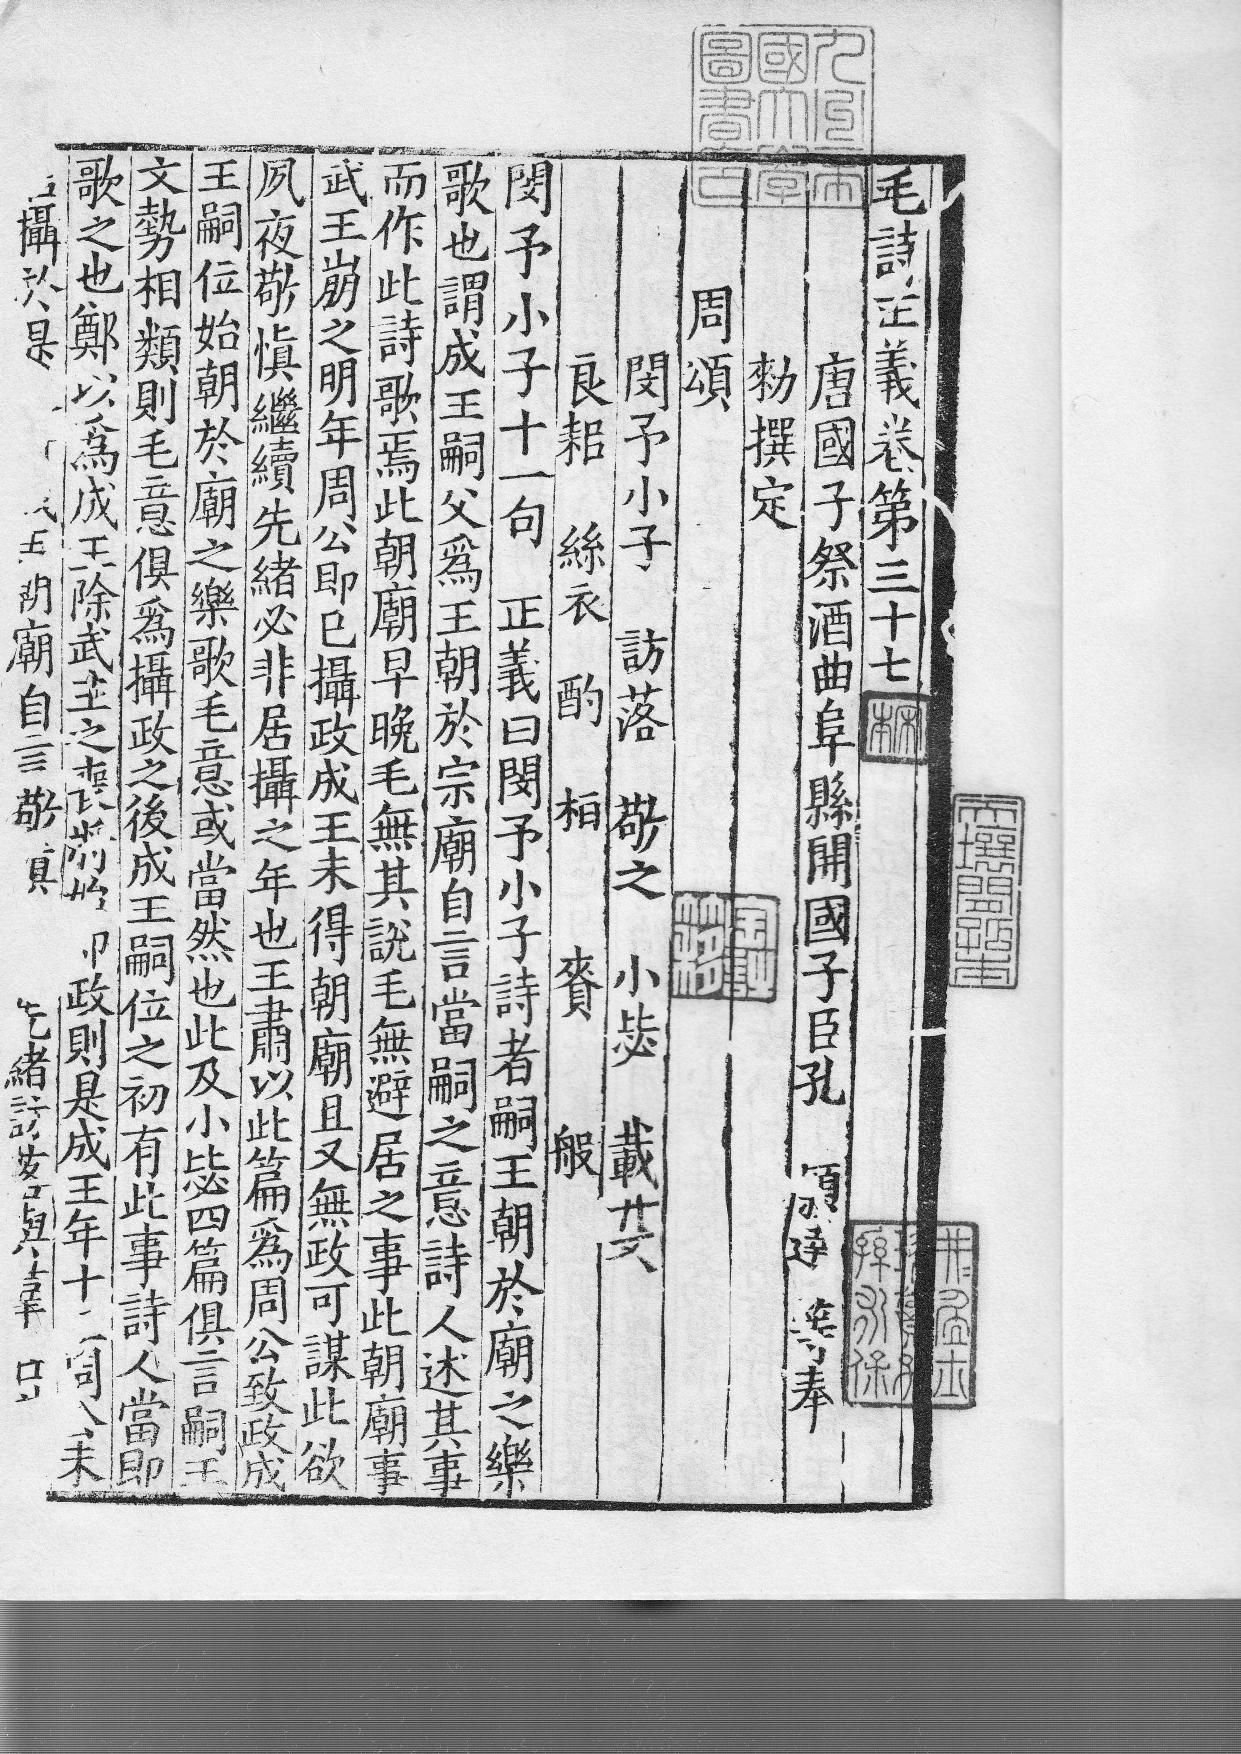 毛詩正義卷第三十七
唐國子祭酒曲阜縣開國子臣孔 穎達 等奉
勑撰定
周頌
閔予小子 訪落 敬之 小毖 載芟
良耜 絲衣 酌 桓 賚 般
閔予小子十一句 正義曰閔予小子詩者嗣王朝於廟之樂
歌也謂成王嗣父爲王朝於宗廟自言當嗣之意詩人述其事
而作此詩歌焉此朝廟早晚毛無其說毛無避居之事此朝廟事
武王崩之明年周公即已攝政成王未得朝廟且又無政可謀此欲
夙夜敬慎繼續先緒必非居攝之年也王肅以此篇爲周公致政成
王嗣位始朝於廟之樂歌毛意或當然也此及小毖四篇俱言嗣王
文勢相類則毛意俱爲攝政之後成王嗣位之初有此事詩人當即
歌之也鄭以爲成王除武王之喪將始 即政則是成王年十 周公未
攝於是 王朝廟自言敬慎 先緒訪 與羣